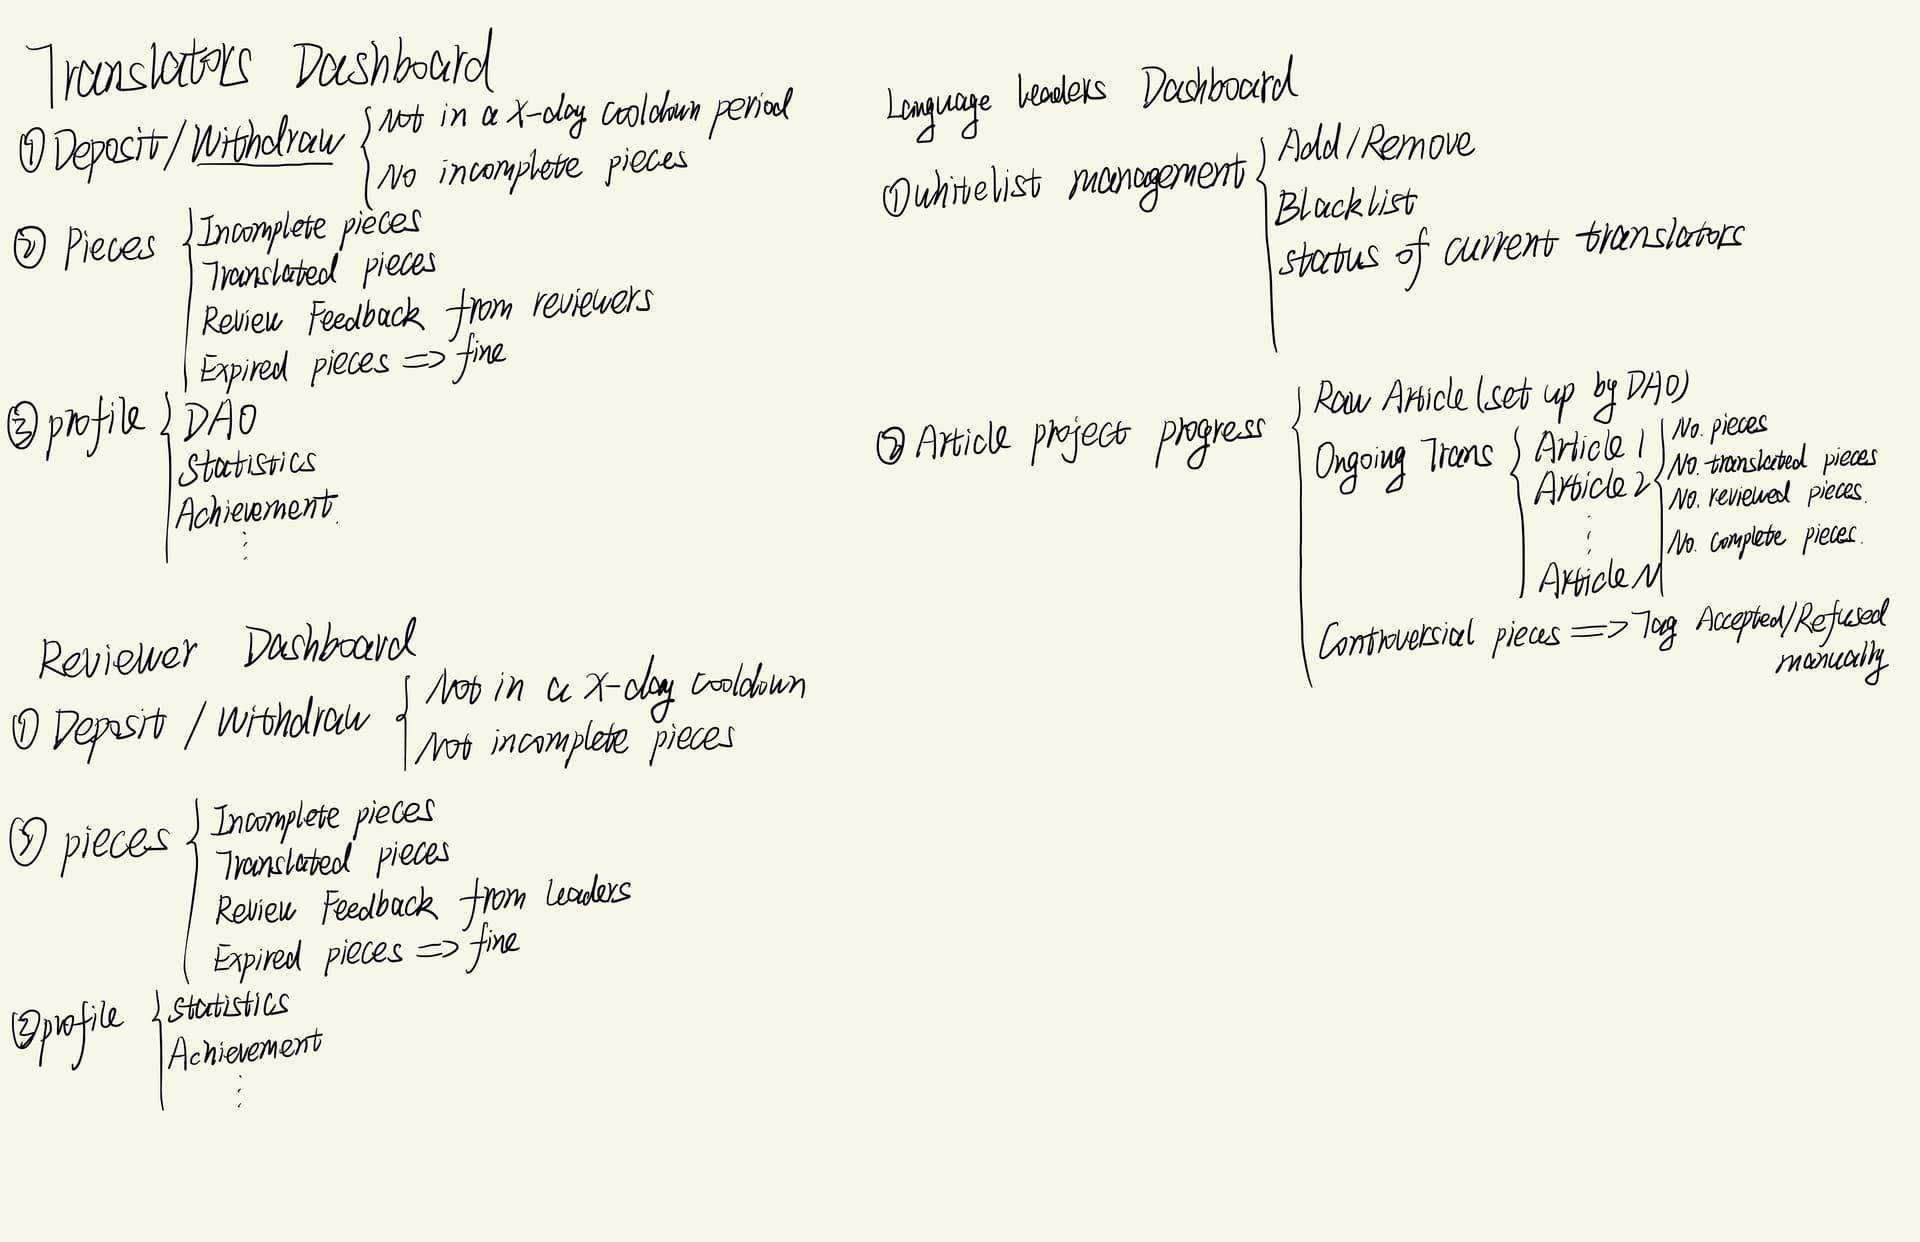 Translators Dashboard
① Deposit/Withdraw
Not in a X-day cooldown period
No incomplete pieces
② Pieces
Incomplete pieces
Translated pieces
Review Feedback from reviewers
Expired pieces => fine
③ profile
DAO
Statistics
Achievement.
⋮
Reviewer Dashboard
① Deposit / Withdraw
Not in a X-day cooldown
Not incomplete pieces
② pieces
Incomplete pieces
Translated pieces
Review Feedback from leaders
Expired pieces => fine
③ profile
Statistics
Achievement
⋮
Language Leaders Dashboard
① Whitelist management
Add/Remove
Blacklist
status of current translators
② Article project progress
Raw Article (set up by DAO)
Ongoing Trans
Article 1
Article 2
⋮
Article N
No. pieces
No. translated pieces
No. reviewed pieces.
No. complete pieces.
Controversial pieces => Tag Accepted/Refused
manually